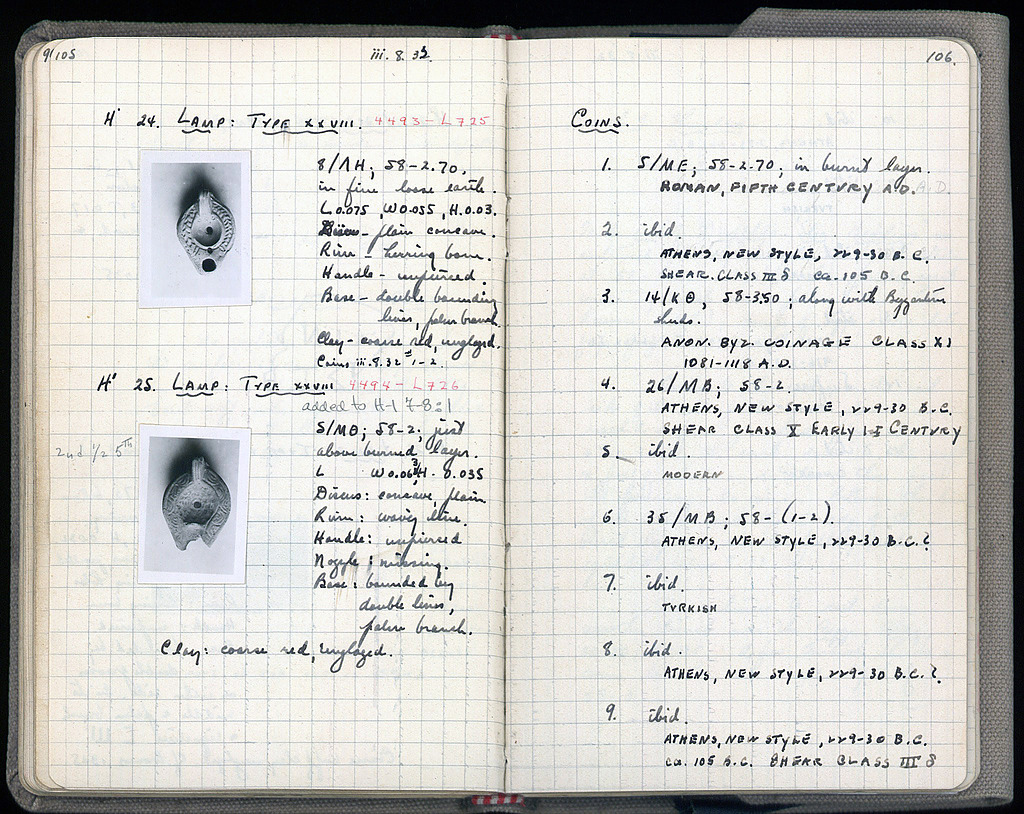 105
iii. 8. 32.
H' 24. LAMP: TYPE XXVIII. 4493 - L725
8/ΛH; 58-2.70,
in fine loose earth.
L 0.075, W 0.055, H. 0.03.
Discus - plain concave.
Rim - herring bone.
Handle - unpierced.
Base - double bounding
lines, palm branch.
Clay - coarse red, unglazed.
Coins iii.8.32 # 1-2.
H' 25. LAMP: TYPE XXVIII 4494 - L726
added to H-1 7-8:1
2nd 1/2 5th
5/MΘ; 58-2; just
above burned layer.
L W 0.063, H. 0.035
Discus: concave, plain
Rim: wavy line.
Handle: unpierced
Nozzle: missing.
Base: bounded by
double lines,
palm branch.
Clay: coarse red, unglazed.
106.
COINS.
1. 5/ME; 58-2.70; in burnt layer.
ROMAN, FIFTH CENTURY A.D.
2. ibid.
ATHENS, NEW STYLE, 229-30 B.C.
SHEAR. CLASS III 8 ca. 105 B.C.
3. 14/KΘ, 58-3.50; along with Byzantine
sherds.
ANON. BYZ. COINAGE CLASS XI
1081-1118 A.D.
4. 26/MB; 58-2.
ATHENS, NEW STYLE, 229-30 B.C.
SHEAR CLASS X EARLY I CENTURY
5. ibid.
MODERN
6. 35/MB; 58-(1-2).
ATHENS, NEW STYLE, 229-30 B.C.?
7. ibid.
TURKISH
8. ibid.
ATHENS, NEW STYLE, 229-30 B.C.?
9. ibid.
ATHENS, NEW STYLE, 229-30 B.C.
ca. 105 B.C. SHEAR CLASS III 8